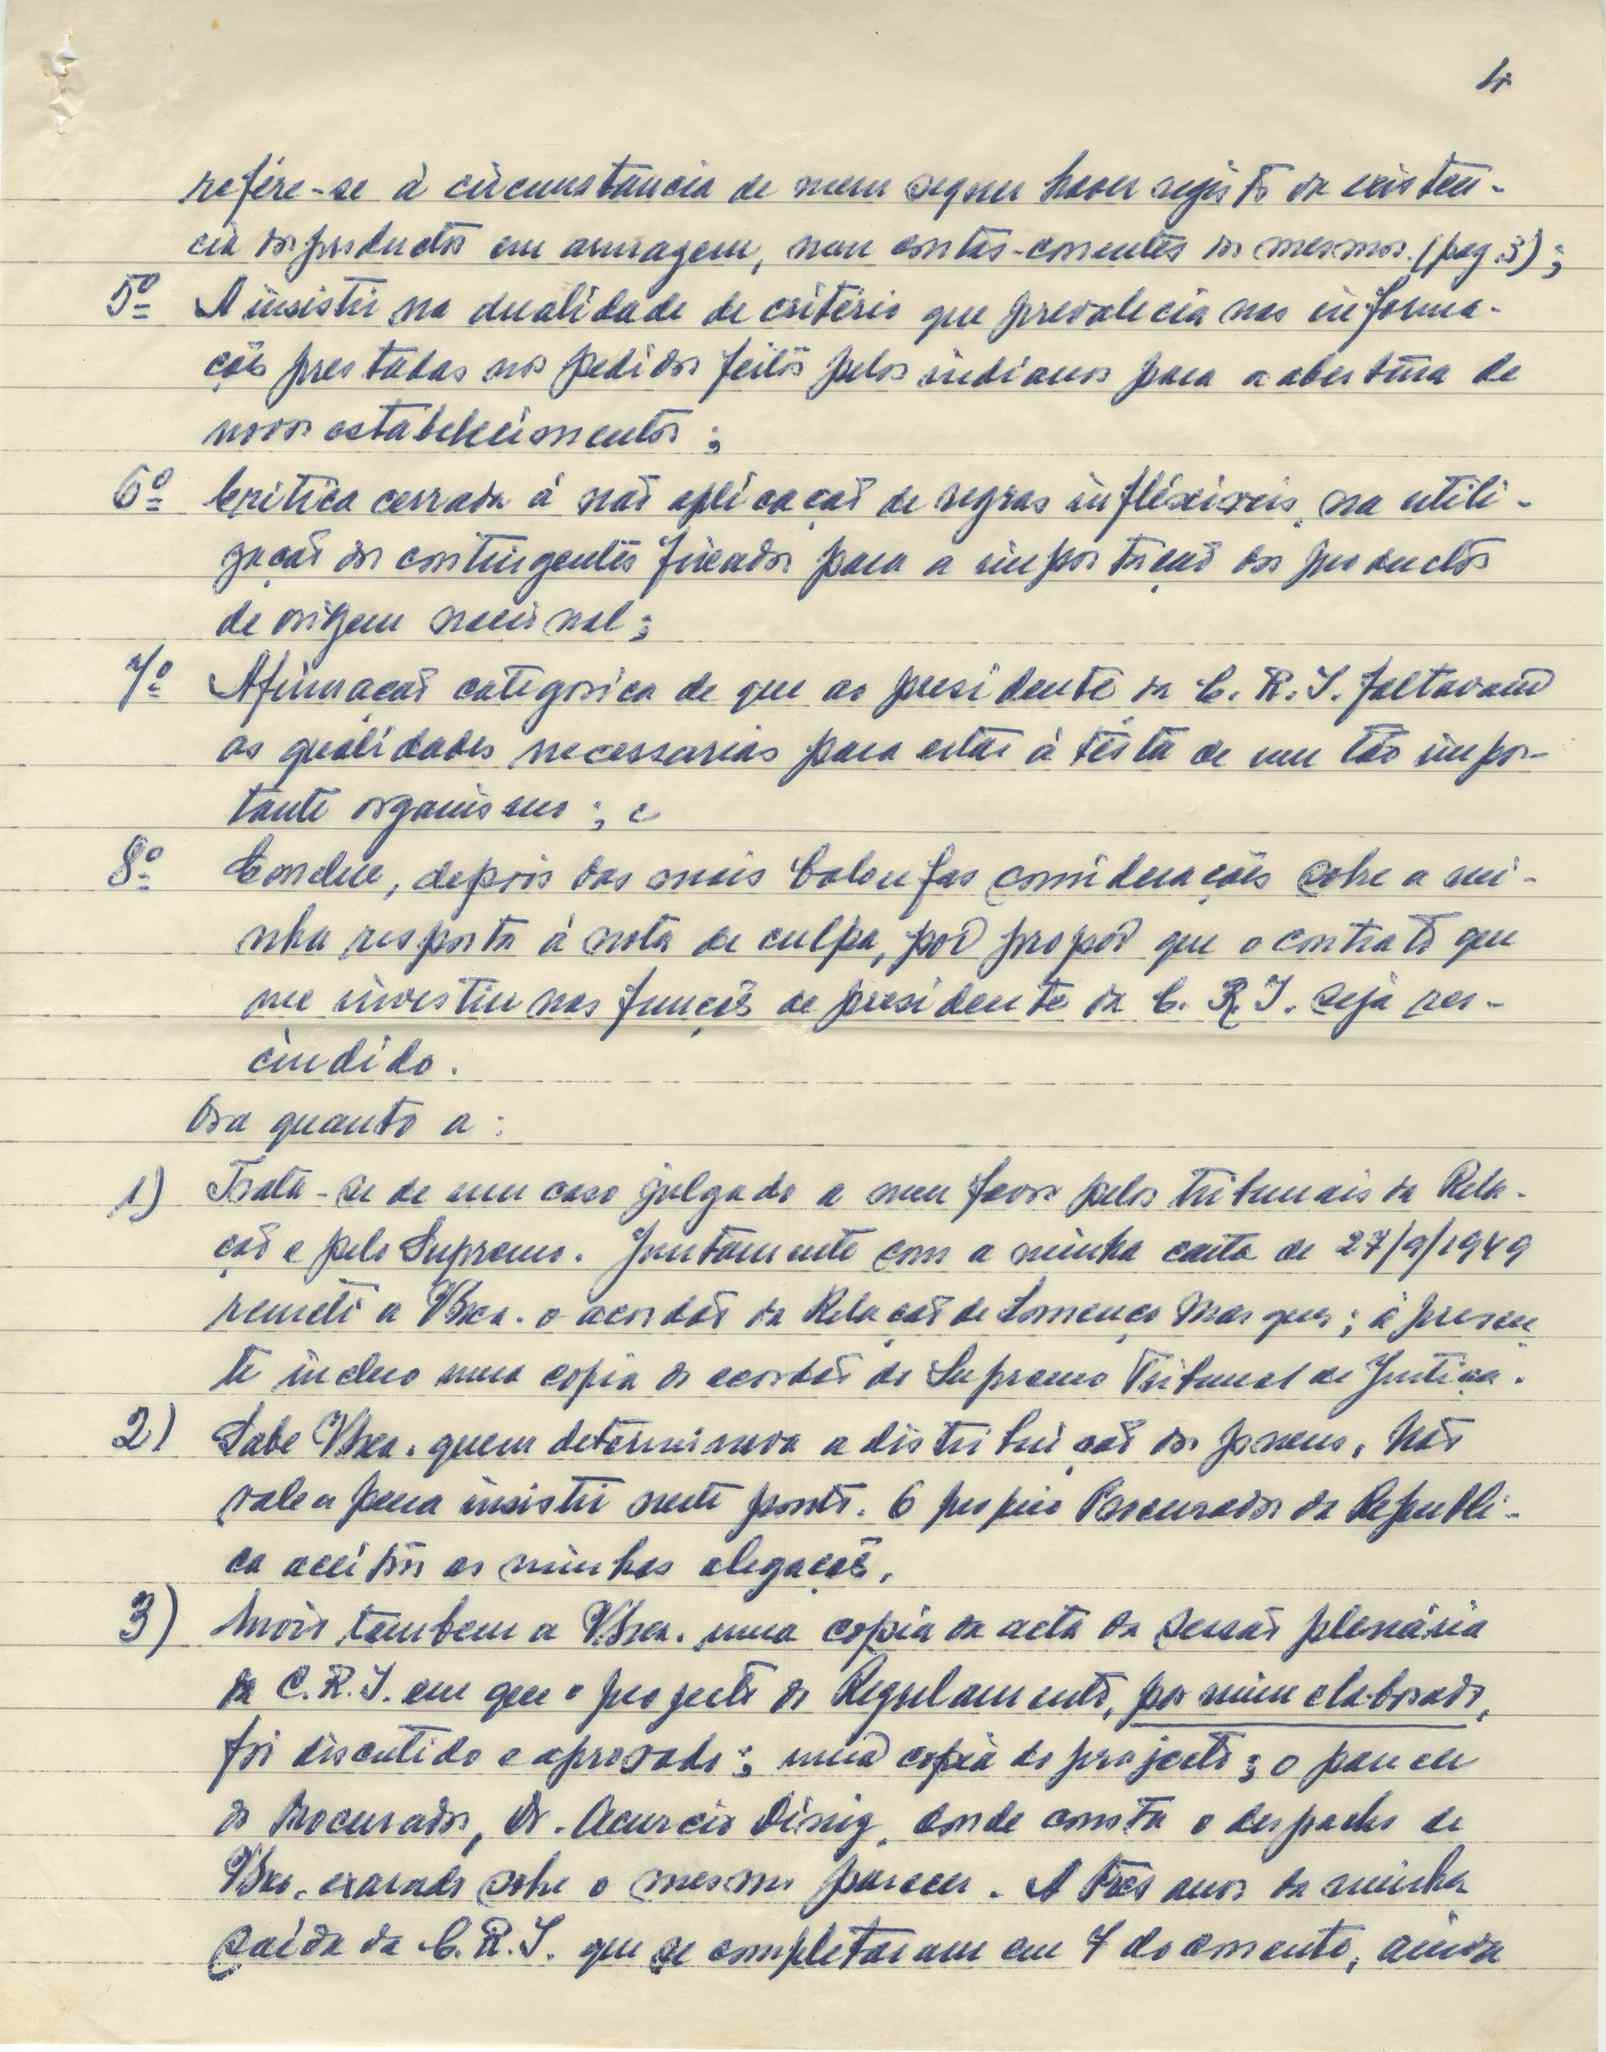 4
refére-se à circunstancia de nem sequer haver registo da existen-
cia dos productos em armagem, nem contas-correntes dos mesmos. (pag. 3);
5º A insistir na dualidade de critério que prevalecia nas informa-
ções prestadas nos pedidos feitos pelos indianos para a abertura de
novos estabelecimentos;
6º Critica cerrada á não aplicação de regras infléxiveis, na utili-
zação dos contingentes fixados para a importação dos productos
de origem nacional;
7º Afirmação categorica de que ao presidente da C. R. I. faltavam
as qualidades necessarias para estar à tésta de um tão impor-
tante organismo; e
8º Conclue, depois das mais balôfas considerações sobre a mi-
nha resposta á nota de culpa, por propôr que o contrato que
me investiu nas funções de presidente da C. R. I. seja res-
cindido.
Ora quanto a:
1) Trata-se de um caso julgado a meu favor pelos tribunais da Rela-
ção e pelo Supremo. Juntamente com a minha carta de 27/9/1949
remeti a VExa. o acordão da Relação de Lourenço Marques; á presen
te incluo uma copia do acordão do Supremo Tribunal de Justiça.
2) Sabe VExa. quem determinava a distribuição dos pneus. Não
vale a pena insistir neste ponto. O proprio Procurador da Republi-
ca aceitou as minhas alegações.
3) Envio tambem a VExa. uma copia da acta da sessão plenária
da C. R. I. em que o projecto do Regulamento, por mim elaborado,
foi discutido e aprovado; uma copia do projecto; o parecer
do Procurador, Dr. Acurcio Diniz, donde consta o despacho de
VExa. exarado sobre o mesmo parecer. A três anos da minha
saída da C. R. I. que se completaram em 7 do corrente, ainda